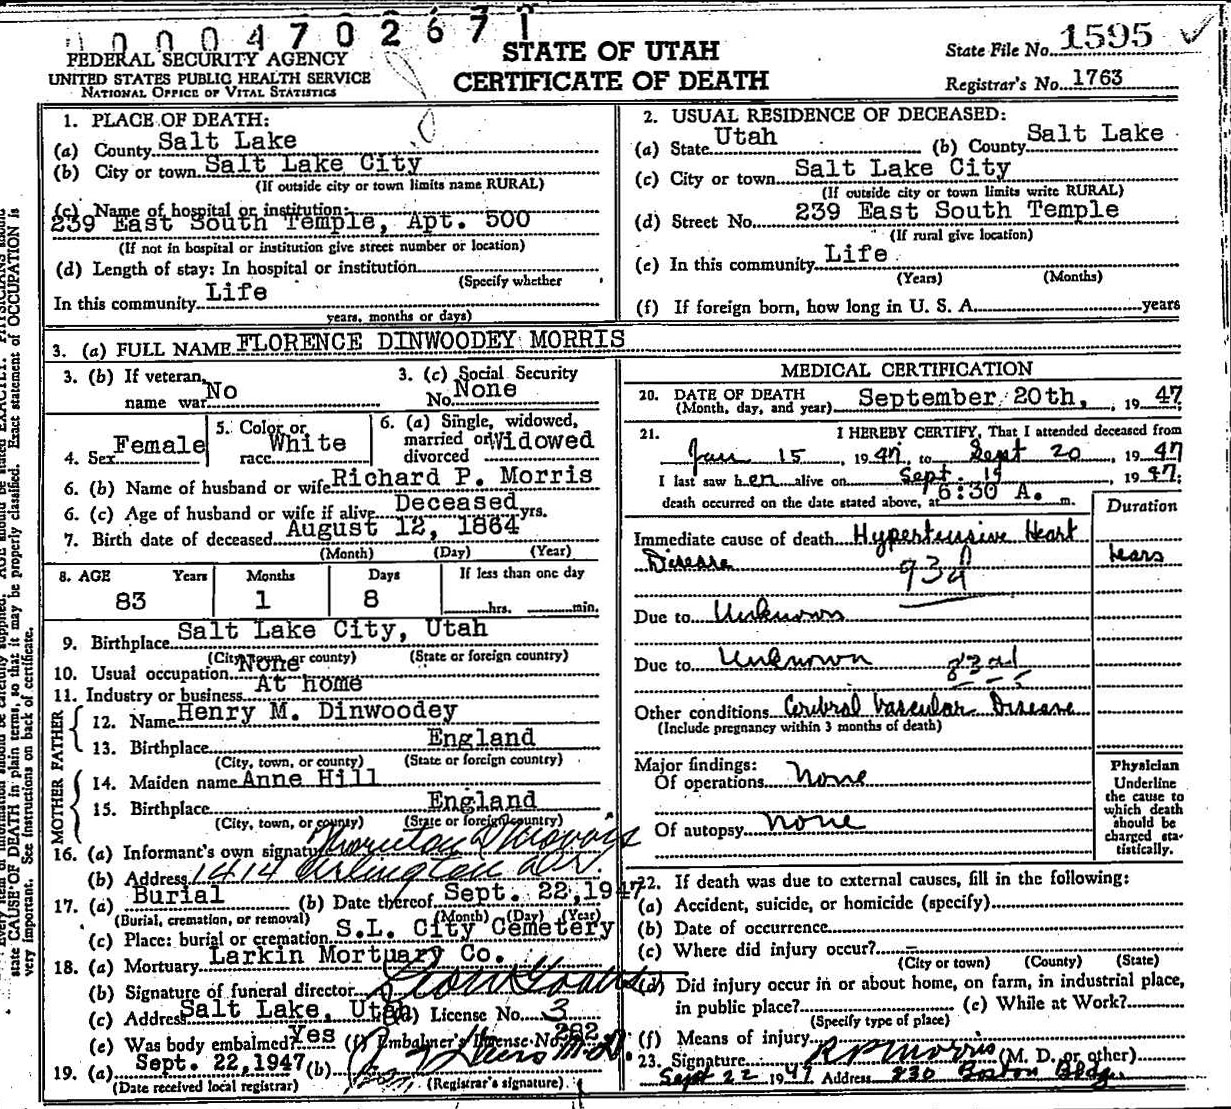 0 0 0 4 7 0 2 6 7 1
FEDERAL SECURITY AGENCY
UNITED STATES PUBLIC HEALTH SERVICE
NATIONAL OFFICE OF VITAL STATISTICS
STATE OF UTAH
CERTIFICATE OF DEATH
State File No. 1595
Registrar's No. 1763
1. PLACE OF DEATH:
(a) County Salt Lake
(b) City or town Salt Lake City
(If outside city or town limits name RURAL)
(c) Name of hospital or institution:
239 East South Temple, Apt. 500
(If not in hospital or institution give street number or location)
(d) Length of stay: In hospital or institution
(Specify whether
In this community Life
years, months or days)
2. USUAL RESIDENCE OF DECEASED:
(a) State Utah (b) County Salt Lake
(c) City or town Salt Lake City
(If outside city or town limits write RURAL)
(d) Street No. 239 East South Temple
(If rural give location)
(e) In this community Life
(Years) (Months)
(f) If foreign born, how long in U. S. A. years
3. (a) FULL NAME FLORENCE DINWOODEY MORRIS
3. (b) If veteran, name war No
3. (c) Social Security No. None
4. Sex Female
5. Color or race White
6. (a) Single, widowed, married or divorced Widowed
6. (b) Name of husband or wife Richard P. Morris
6. (c) Age of husband or wife if alive Deceased yrs.
7. Birth date of deceased August 12, 1864
(Month) (Day) (Year)
8. AGE Years Months Days If less than one day
83 1 8 hrs. min.
9. Birthplace Salt Lake City, Utah
(City, town, or county) (State or foreign country)
10. Usual occupation None
11. Industry or business At home
FATHER
12. Name Henry M. Dinwoodey
13. Birthplace England
(City, town, or county) (State or foreign country)
MOTHER
14. Maiden name Anne Hill
15. Birthplace England
(City, town, or county) (State or foreign country)
16. (a) Informant's own signature Thornton D Morris
(b) Address 1414 Arlington Dr.
17. (a) Burial (b) Date thereof Sept. 22, 1947
(Burial, cremation, or removal) (Month) (Day) (Year)
(c) Place: burial or cremation S.L. City Cemetery
18. (a) Mortuary Larkin Mortuary Co.
(b) Signature of funeral director
(c) Address Salt Lake, Utah (d) License No. 3
(e) Was body embalmed? Yes (f) Embalmer's license No. 282
19. (a) Sept. 22, 1947 (b)
(Date received local registrar) (Registrar's signature)
MEDICAL CERTIFICATION
20. DATE OF DEATH
(Month, day, and year) September 20th, , 1947
21. I HEREBY CERTIFY, That I attended deceased from
Jan 15, 1947, to Sept 20, 1947
I last saw her alive on Sept. 19, 1947;
death occurred on the date stated above, at 6:30 A. m.
Duration
Immediate cause of death Hypertensive Heart
Disease years
93d
Due to Unknown
Due to Unknown 83d
Other conditions Cerebral Vascular Disease
(Include pregnancy within 3 months of death)
Major findings:
Of operations None
Of autopsy None
Physician
Underline
the cause to
which death
should be
charged sta-
tistically.
22. If death was due to external causes, fill in the following:
(a) Accident, suicide, or homicide (specify)
(b) Date of occurrence
(c) Where did injury occur?
(City or town) (County) (State)
(d) Did injury occur in or about home, on farm, in industrial place,
in public place? (e) While at Work?
(Specify type of place)
(f) Means of injury
23. Signature R P Morris (M. D. or other)
Sept 22 1947 Address 830 Boston Bldg.
state CAUSE OF DEATH in plain terms, so that it may be properly classified. Exact statement of OCCUPATION is
very important. See instructions on back of certificate.